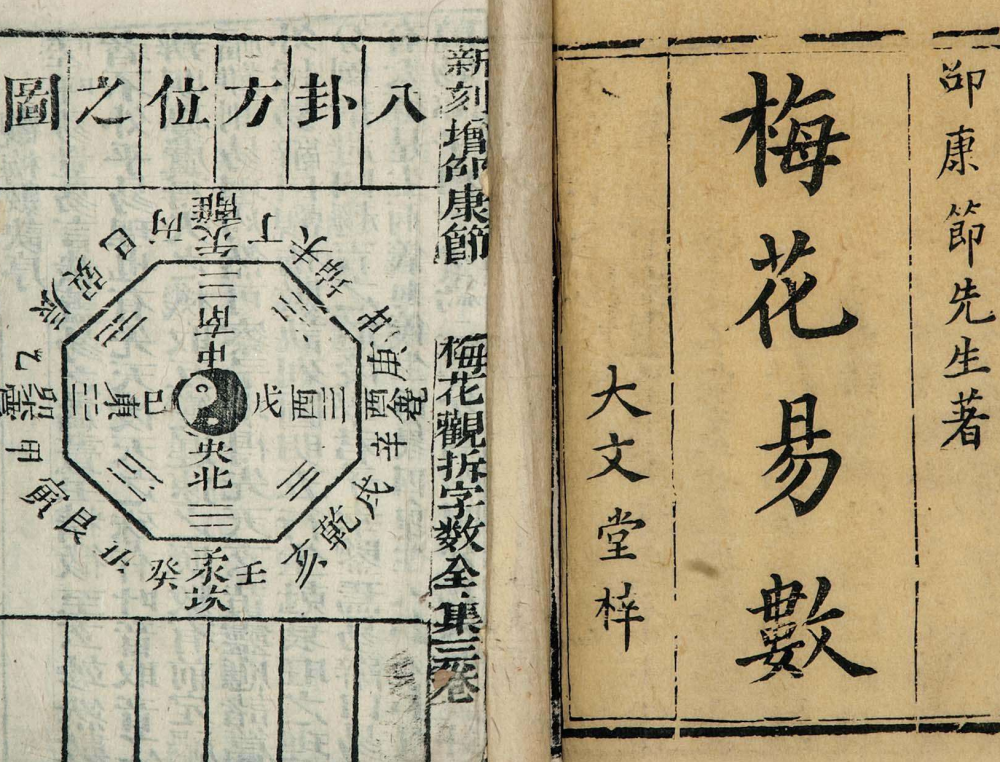 邵康節先生著
梅花易數
大文堂梓
新刻增邵康節 梅花觀拆字数全集三卷
八卦方位之圖
丙
午離
丁
未坤
申
庚
酉兌
辛
戌
乾
亥
壬
子坎
癸
丑
艮
寅
甲
卯震
乙
辰
巽
巳
南
中央
北
東
己
戊
西